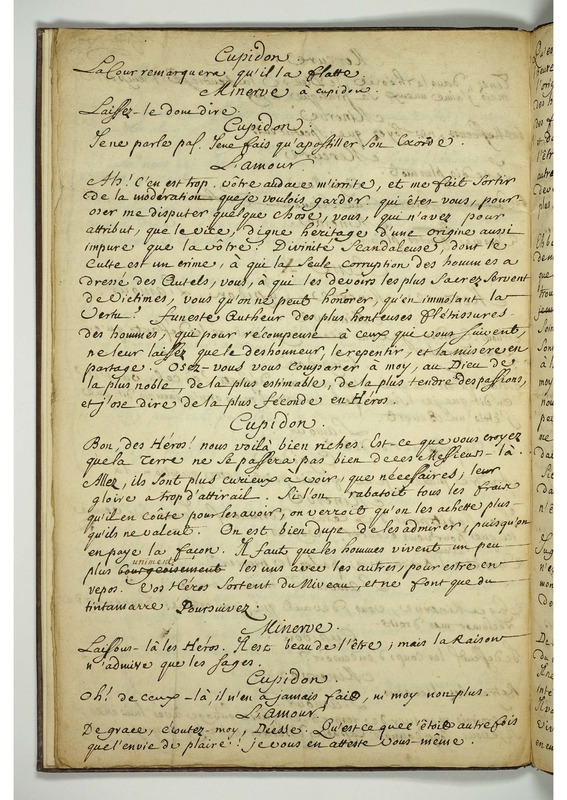 Cupidon.
La Cour remarquera qu'il la flatte.
Minerve à Cupidon.
Laissez-le donc dire.
Cupidon.
Je ne parle pas. Je ne fais qu'apostiller son Exorde.
L'amour.
Ah! C'en est trop. vôtre audace m'irrite, et me fait sortir
de la modération que je voulois garder. qui êtes-vous, pour
oser me disputer quelque chose, vous, qui n'avez pour
attribut, que le vice, digne héritage d'une origine aussi
impure que la vôtre? Divinité Scandaleuse, dont le
Culte est un crime, à qui la seule corruption des hommes a
dressé des Autels, vous, à qui les devoirs les plus Sacrez servent
de victimes, vous qu'on ne peut honorer, qu'en immolant la
vertu? Funeste Autheur des plus honteuses flétrissures
des hommes, qui pour récompense à ceux qui vous suivent,
ne leur laissez que le deshonneur, le repentir, et la misere en
partage. Osez-vous vous comparer à moy, au Dieu de
la plus noble, de la plus estimable, de la plus tendre des passions,
et j'ose dire de la plus féconde en Héros.
Cupidon.
Bon, des Héros! nous voilà bien riches. Est-ce que vous croyez
que la Terre ne se passera pas bien de ces Messieurs-là.
Allez, ils sont plus curieux à voir, que nécessaires; leur
gloire a trop d'attirail. Si l'on rabatoit tous les frais
qu'il en coûte pour les avoir, on verroit qu'on les achette plus
qu'ils ne valent. On est bien dupe de les admirer, puisqu'on
en paye la façon. Il faut que les hommes vivent un peu
uniment
plus bourgeoisement les uns avec les autres, pour estre en
repos. Vos Héros sortent du Niveau, et ne font que du
tintamarre. Poursuivez.
Minerve.
Laissons-là les Héros. Il est beau de l'être; mais la Raison
n'admire que les sages.
Cupidon.
Oh! de ceux-là il n'en a jamais fait, ni moy non plus.
L'amour.
De grace, écoutez-moy, Déesse. Qu'est-ce que c'étoit autrefois
que l'envie de plaire? je vous en atteste vous-même.